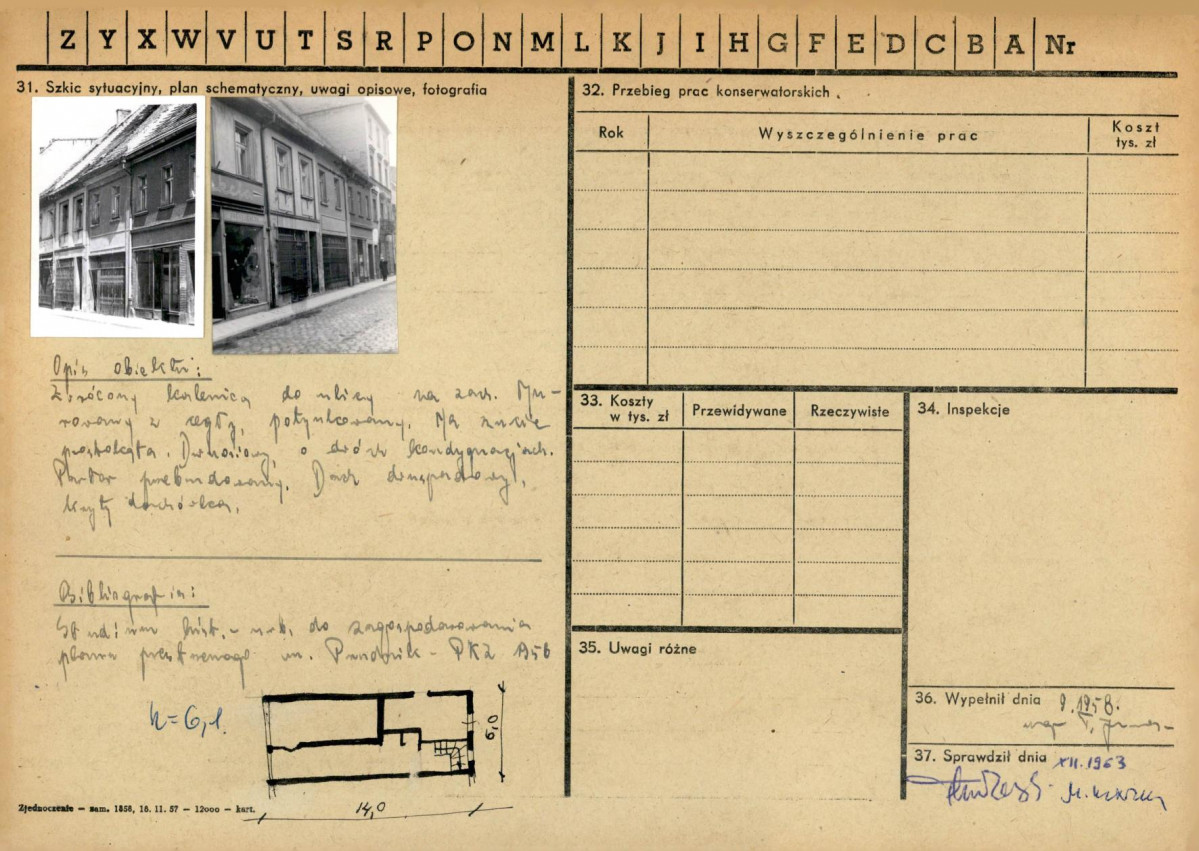 Z Y X W V U T S R P O N M L K J I H G F E D C B A Nr
31. Szkic sytuacyjny, plan schematyczny, uwagi opisowe, fotografia
Opis obiektu:
Zwrócony kalenicą do ulicy na zach. Mu-
rowany z cegły, potynkowany. Na rzucie
prostokąta. Dwuosiowy, o dwóch kondygnacjach.
Parter przebudowany. Dach dwuspadowy,
kryty dachówką.
Bibliografia:
Studium hist.-urb. do zagospodarowania
planu przestrzennego m. Prudnik - PKZ 1956
h = 6,1.
6,0
14,0
Zjednoczenie — zam. 1856, 16. 11. 57 — 12000 — kart.
32. Przebieg prac konserwatorskich
Rok
Wyszczególnienie prac
Koszt
tys. zł
33. Koszty
w tys. zł
Przewidywane
Rzeczywiste
34. Inspekcje
35. Uwagi różne
36. Wypełnił dnia 9.1958.
mgr
37. Sprawdził dnia XII.1963